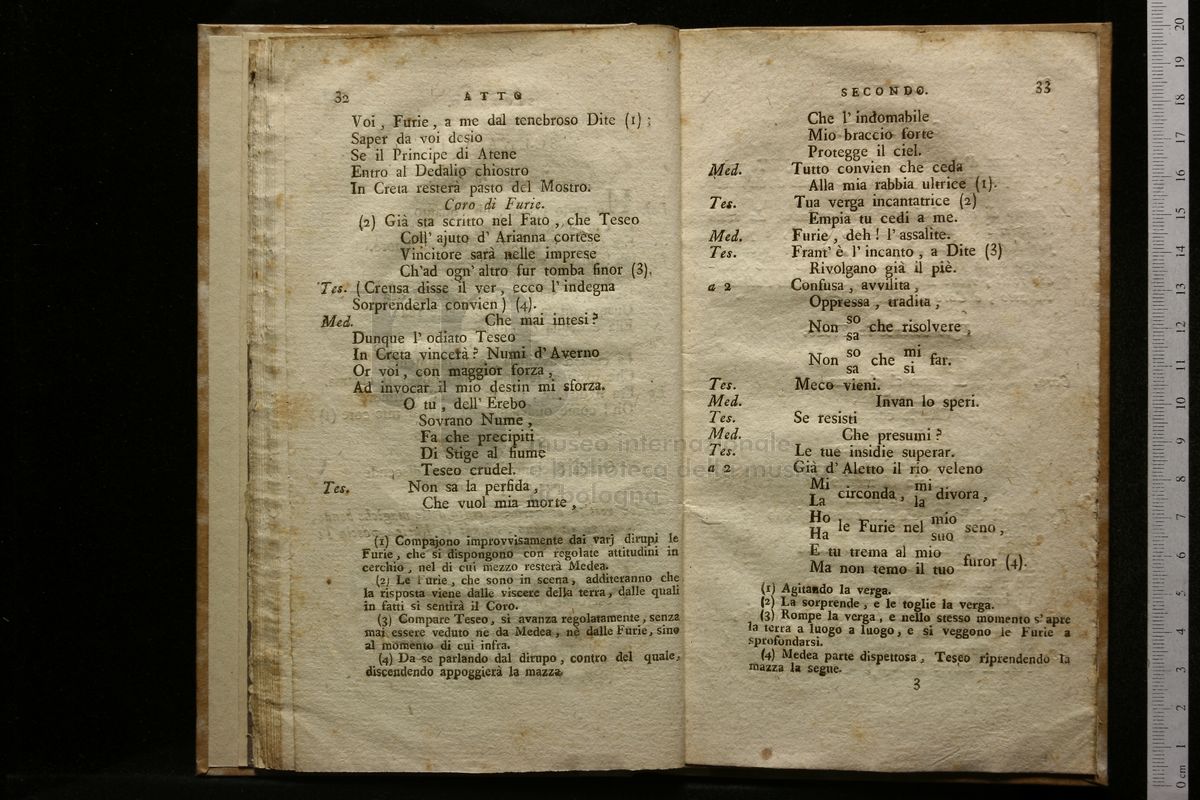 32 ATTO
Voi, Furie, a me dal tenebroso Dite (1);
Saper da voi desio
Se il Principe di Atene
Entro al Dedalio chiostro
In Creta resterà pasto del Mostro.
Coro di Furie.
(2) Già sta scritto nel Fato, che Teseo
Coll' ajuto d' Arianna cortese
Vincitore sarà nelle imprese
Ch'ad ogn' altro fur tomba finor (3).
Tes. (Creusa disse il ver, ecco l' indegna
Sorprenderla convien) (4).
Med. Che mai intesi?
Dunque l' odiato Teseo
In Creta vincerà? Numi d' Averno
Or voi, con maggior forza,
Ad invocar il mio destin mi sforza.
O tu, dell' Erebo
Sovrano Nume,
Fa che precipiti
Di Stige al fiume
Teseo crudel.
Tes. Non sa la perfida,
Che vuol mia morte,
(1) Compajono improvvisamente dai varj dirupi le
Furie, che si dispongono con regolate attitudini in
cerchio, nel di cui mezzo resterà Medea.
(2) Le Furie, che sono in scena, additeranno che
la risposta viene dalle viscere della terra, dalle quali
in fatti si sentirà il Coro.
(3) Compare Teseo, si avanza regolatamente, senza
mai essere veduto ne da Medea, nè dalle Furie, sino
al momento di cui infra.
(4) Da se parlando dal dirupo, contro del quale,
discendendo appoggierà la mazza.
SECONDO. 33
Che l' indomabile
Mio braccio forte
Protegge il ciel.
Med. Tutto convien che ceda
Alla mia rabbia ultrice (1).
Tes. Tua verga incantatrice (2)
Empia tu cedi a me.
Med. Furie, deh! l' assalite.
Tes. Frant' è l' incanto, a Dite (3)
Rivolgano già il piè.
a 2 Confusa, avvilita,
Oppressa, tradita,
Non so che risolvere,
sa
Non so che mi far.
sa si
Tes. Meco vieni.
Med. Invan lo speri.
Tes. Se resisti
Med. Che presumi?
Tes. Le tue insidie superar.
a 2 Già d' Aletto il rio veleno
Mi circonda, mi divora,
La la
Ho le Furie nel mio seno,
Ha suo
E tu trema al mio furor (4).
Ma non temo il tuo
(1) Agitando la verga.
(2) La sorprende, e le toglie la verga.
(3) Rompe la verga, e nello stesso momento s' apre
la terra a luogo a luogo, e si veggono le Furie a
sprofondarsi.
(4) Medea parte dispettosa, Teseo riprendendo la
mazza la segue.
3
museo internazionale
e biblioteca della musica
di bologna
0 cm 1 2 3 4 5 6 7 8 9 10 11 12 13 14 15 16 17 18 19 20